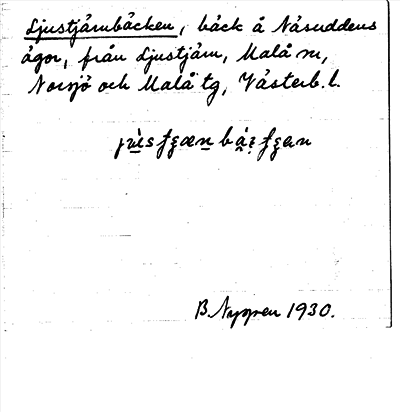 Ljustjärnbäcken, bäck å Näsuddens
ägor, från Ljustjärn, Malå sn,
Norsjö och Malå tg, Västerb. l.
B. Nygren 1930.